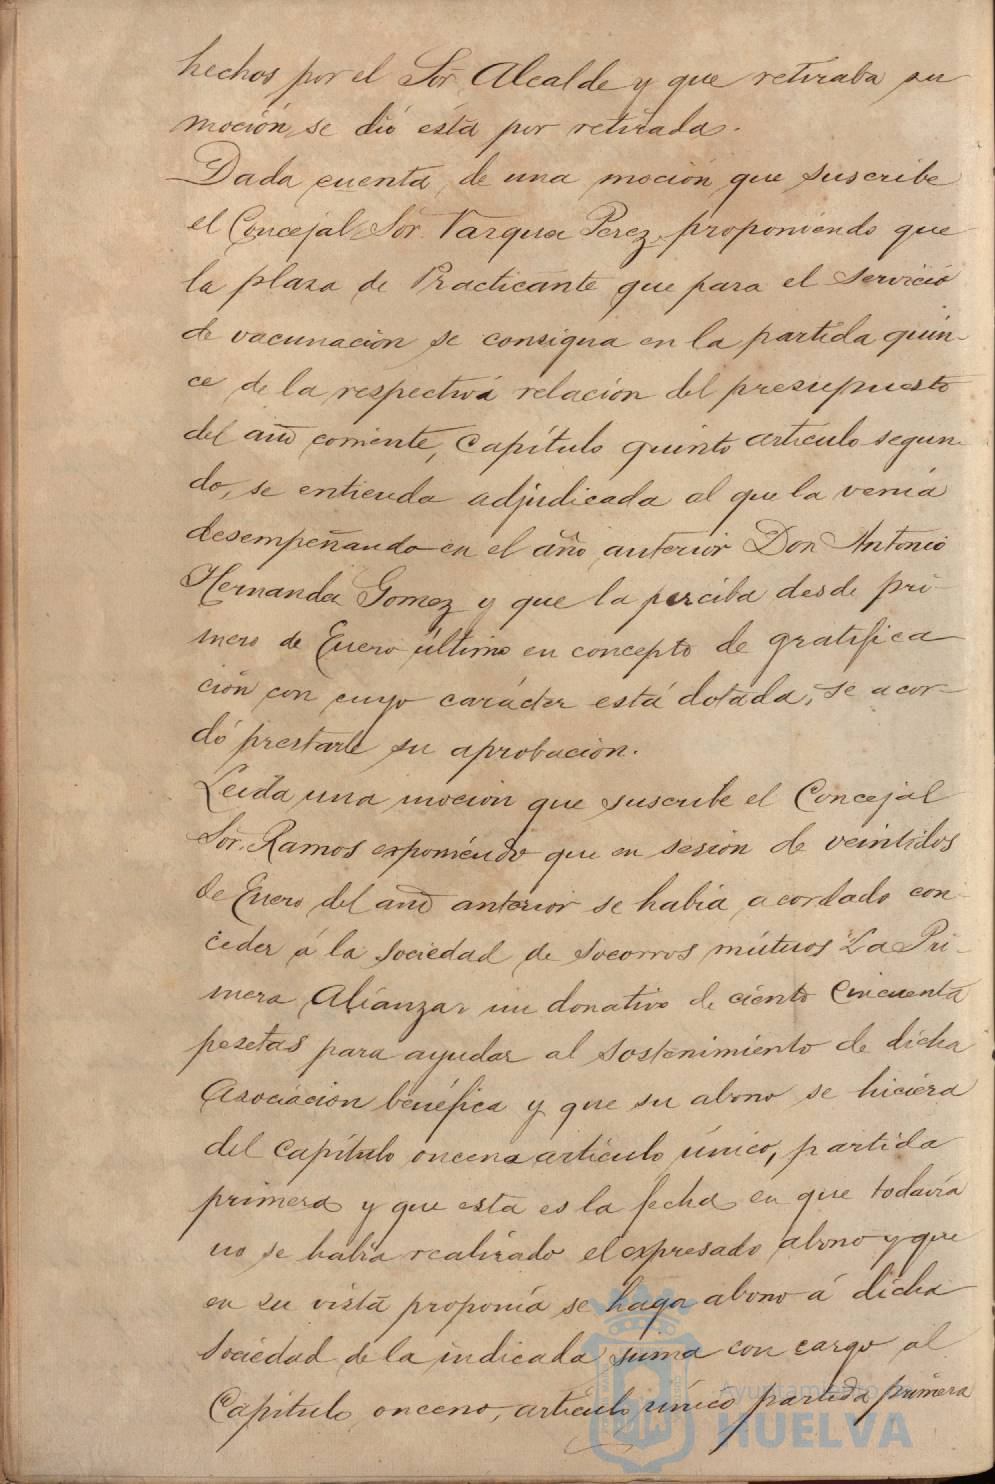 hechos por el Sor. Alcalde y que retiraba su
moción, se dió ésta por retirada.
Dada cuenta de una moción que suscribe
el Concejal Sor. Perez, proponiendo que
la plaza de Practicante que para el servicio
de vacunación se consigna en la partida quin-
ce de la respectiva relación del presupuesto
del año corriente, Capítulo quinto artículo segun-
do, se entienda adjudicada al que la venía
desempeñando en el año anterior Don Antonio
Hernandez Gomez y que la perciba desde pri-
mero de Enero último en concepto de gratifica
ción con cuyo carácter está dotada, se acor-
dó prestarle su aprobación.
Leida una moción que suscribe el Concejal
Sor. Ramos exponiendo que en sesión de veintidos
de Enero del año anterior se había acordado con-
ceder á la sociedad de socorros mútuos La Pri-
mera Alianza, un donativo de ciento cincuenta
pesetas para ayudar al sostenimiento de dicha
Asociación benéfica y que su abono se hiciera
del Capítulo onceno artículo único, partida
primera y que esta es la fecha en que todavía
no se había realizado el expresado abono y que
en su vista proponía se haga abono á dicha
Sociedad de la indicada suma con cargo al
Capítulo onceno, artículo único partida primera
Ayuntamiento de
HUELVA